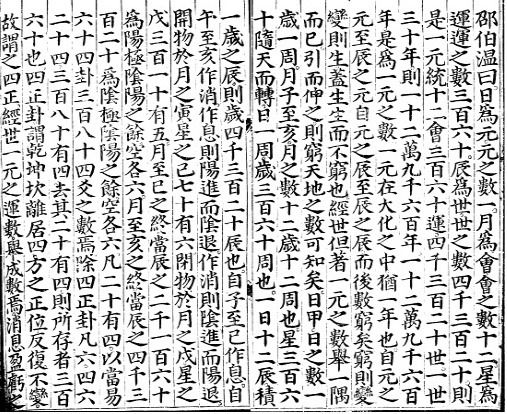 邵伯温曰日爲元元之數一月爲會會之數十二星爲
運運之數三百六十辰爲世世之數四千三百二十則
是一元統十二會三百六十運四千三百二十世一世
三十年則一十二萬九千六百年一十二萬九千六百
年是爲一元之數一元在大化之中猶一年也自元之
元至辰之元自元之辰至辰之辰而後數窮矣窮則變
變則生蓋生生而不窮也經世但著一元之數舉一隅
而已引而伸之則窮天地之數可知矣日甲日之數一
歲一周月子至亥月之數十二歲十二周也星三百六
十隨天而轉日一周歲三百六十周也一日十二辰積
一歲之辰則歲四千三百二十辰也自子至巳作息自
午至亥作消作息則陽進而陰退作消則陰進而陽退
開物於月之寅星之己七十有六閉物於月之戌星之
戊三百一十有五月至巳之終當辰之二千一百六十
爲陽極陰陽之餘空各六月至亥之終當辰之四千三
百二十爲陰極陰陽之餘空各六凡二十有四以當易
六十四卦三百八十四爻之數焉除四正卦凡六四六
二十四三百八十有四去其二十有四則所存者三百
六十也四正卦謂乾坤坎離居四方之正位反復不變
故謂之四正經世一元之運數舉成數焉消息盈虧之